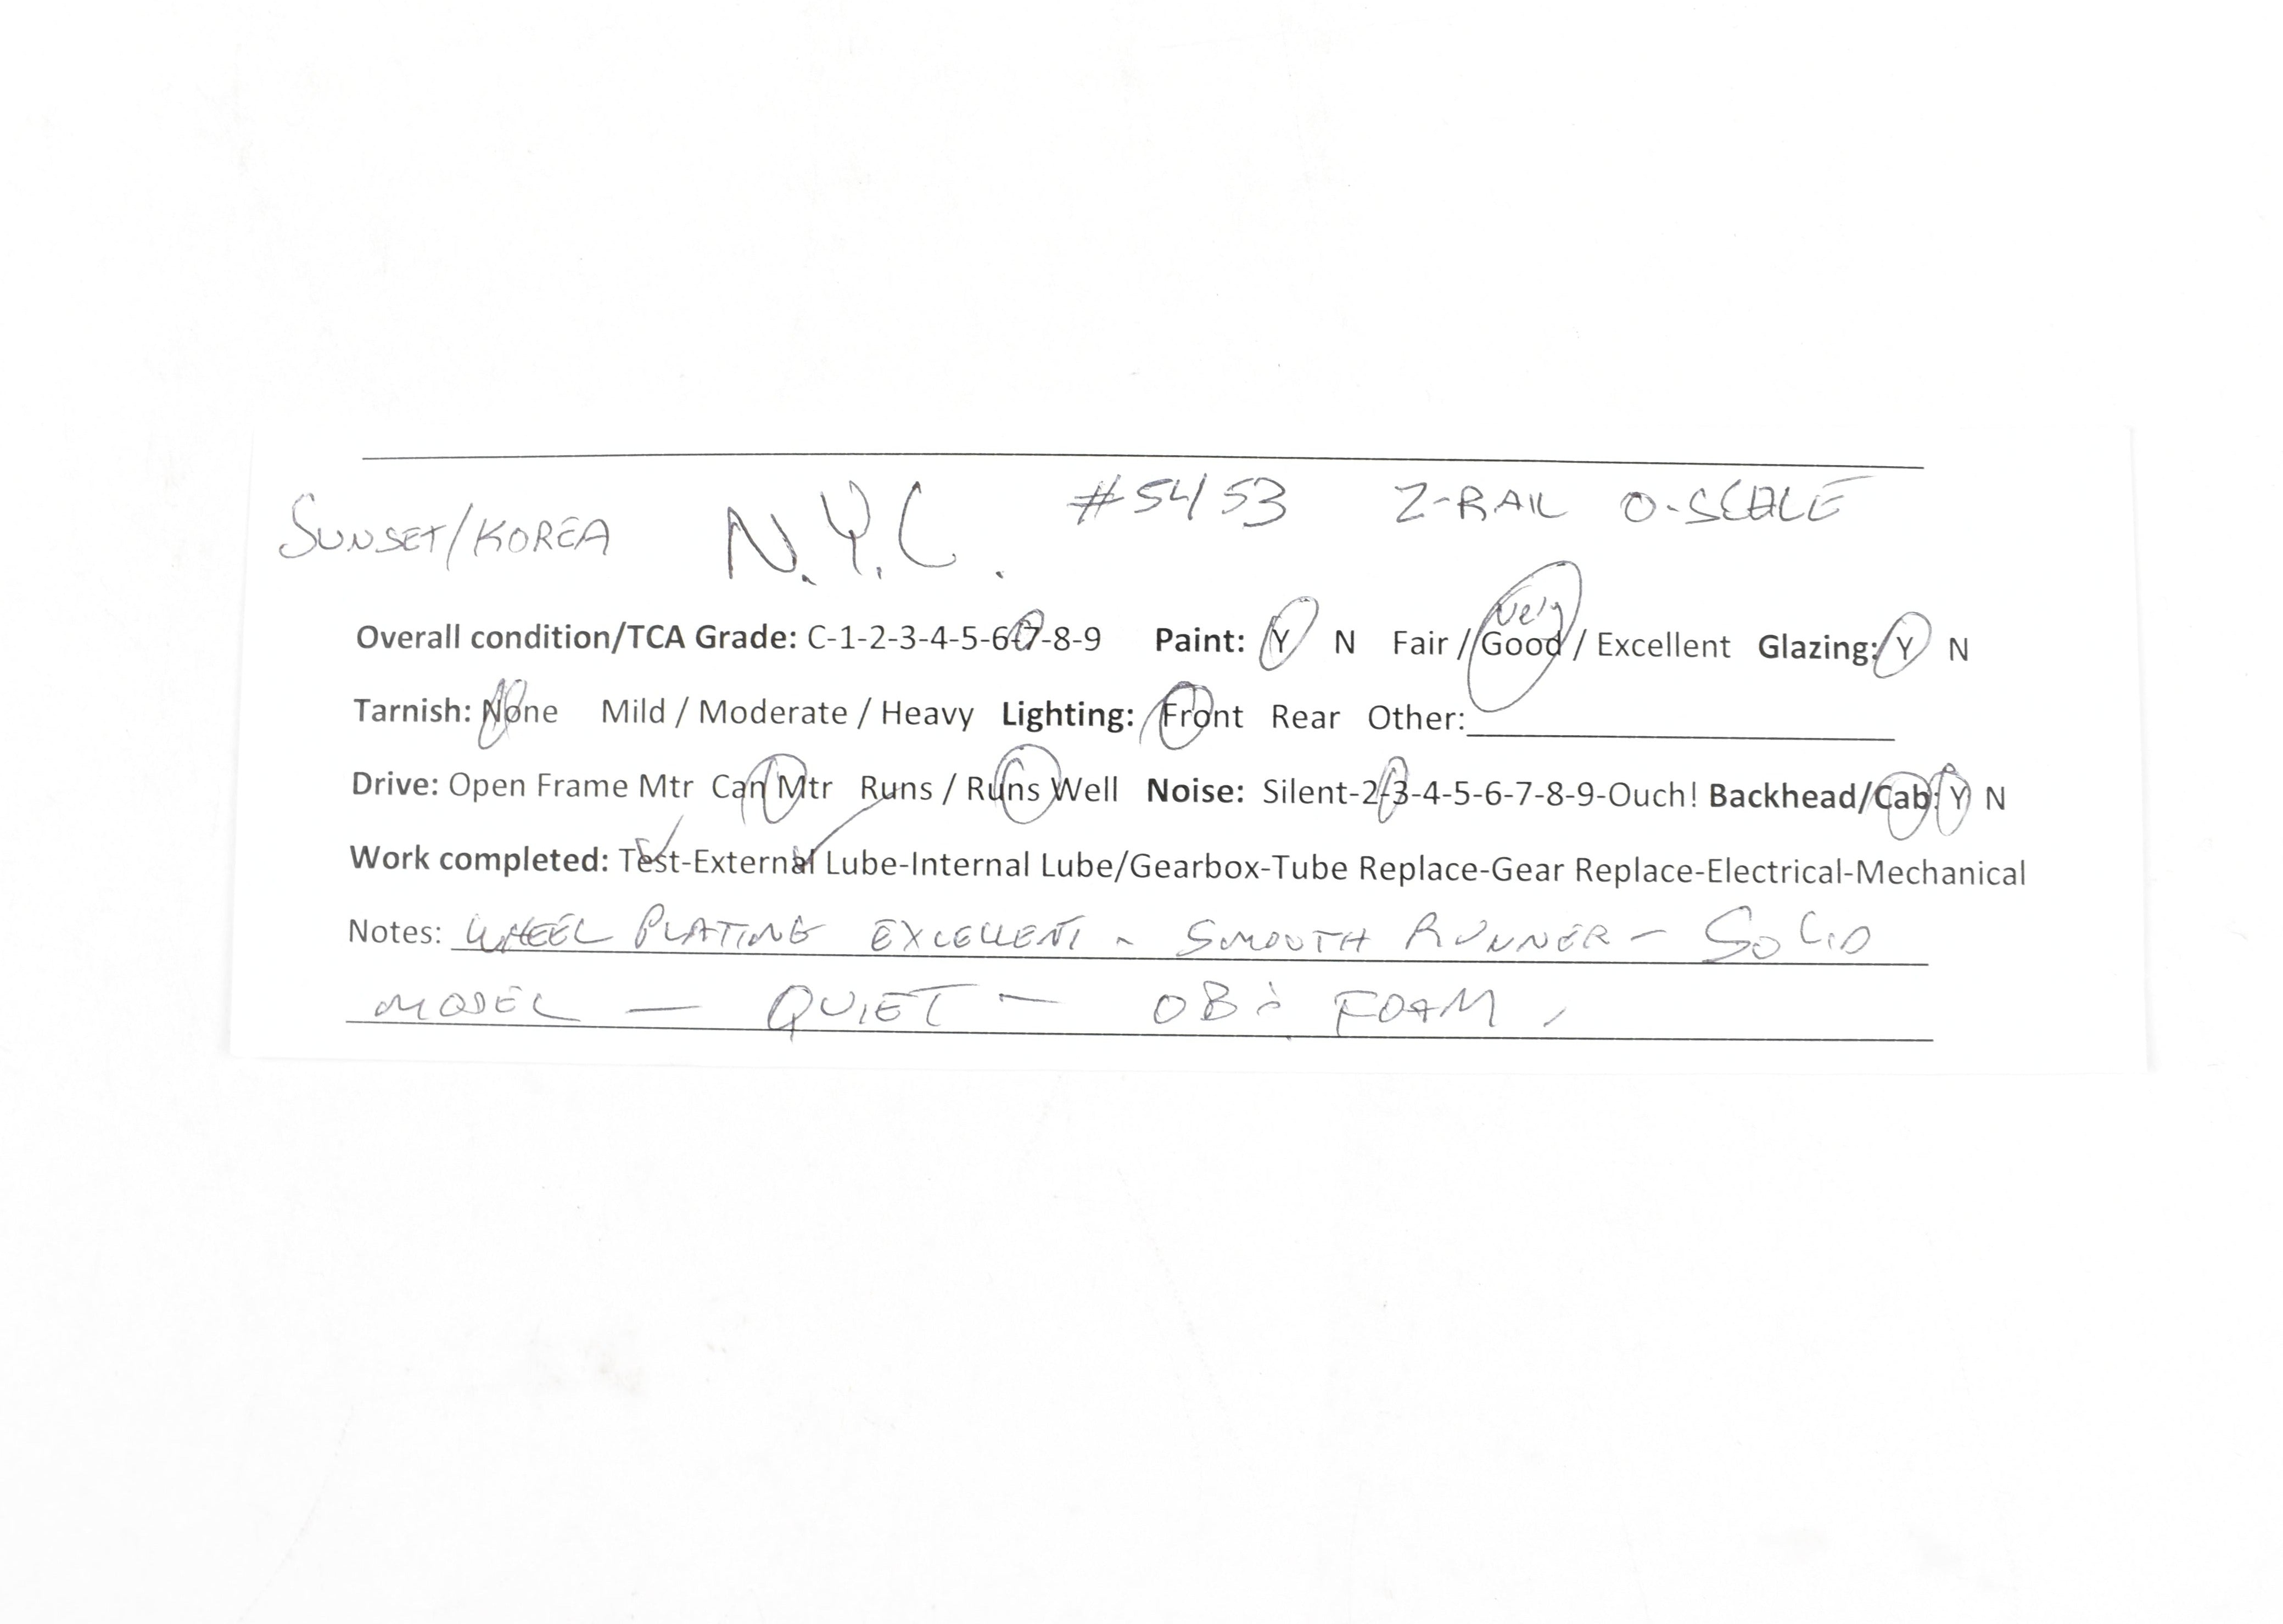 SUNSET/KOREA N.Y.C. #5453 2-RAIL O-SCALE
Overall condition/TCA Grade: C-1-2-3-4-5-6-7-8-9 Paint: Y N Fair / Very Good / Excellent Glazing: Y N
Tarnish: None Mild / Moderate / Heavy Lighting: Front Rear Other:
Drive: Open Frame Mtr Can Mtr Runs / Runs Well Noise: Silent-2-3-4-5-6-7-8-9-Ouch! Backhead/Cab: Y N
Work completed: Test-External Lube-Internal Lube/Gearbox-Tube Replace-Gear Replace-Electrical-Mechanical
Notes: WHEEL PLATING EXCELLENT - SMOOTH RUNNER - SOLID
MODEL — QUIET — OB & FOAM.